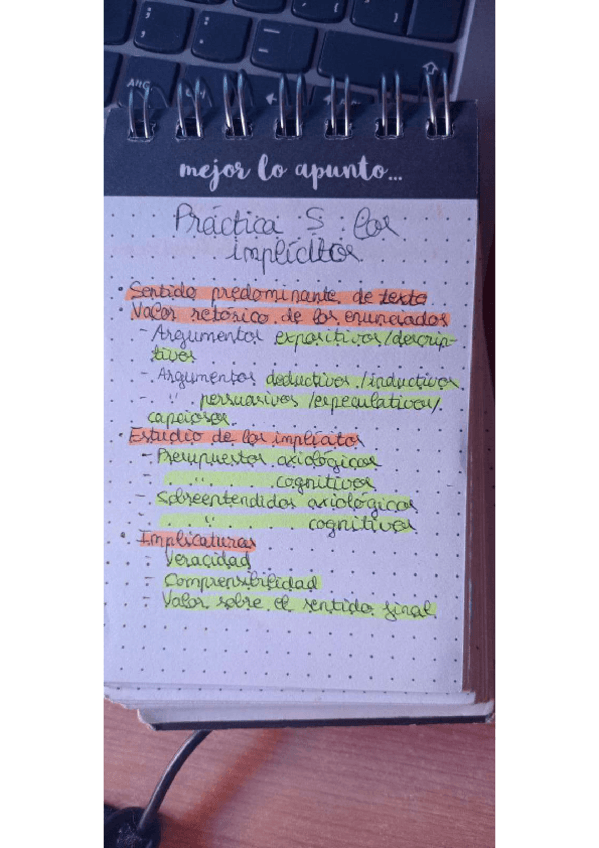 Alt Gr
mejor lo apunto...
Práctica 5: los
implícitos
· Sentido predominante de texto
· Valor retórico de los enunciados
- Argumentos expositivos/descrip-
tivos
- Argumentos deductivos/inductivos
- " persuasivos/especulativos/
capciosos.
· Estudio de los implícitos
- Presupuestos axiológicos
- " cognitivos
- Sobreentendidos axiológicos
- " cognitivos
· Implicaturas
- Veracidad
- Comprensibilidad
- Valor sobre el sentido final